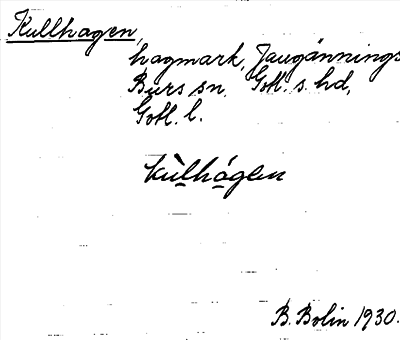 Kullhagen,
hagmark, Jaugännings
Burs sn. Gotl. s. hd,
Gotl. l.
kùlhágen
B. Bolin 1930.